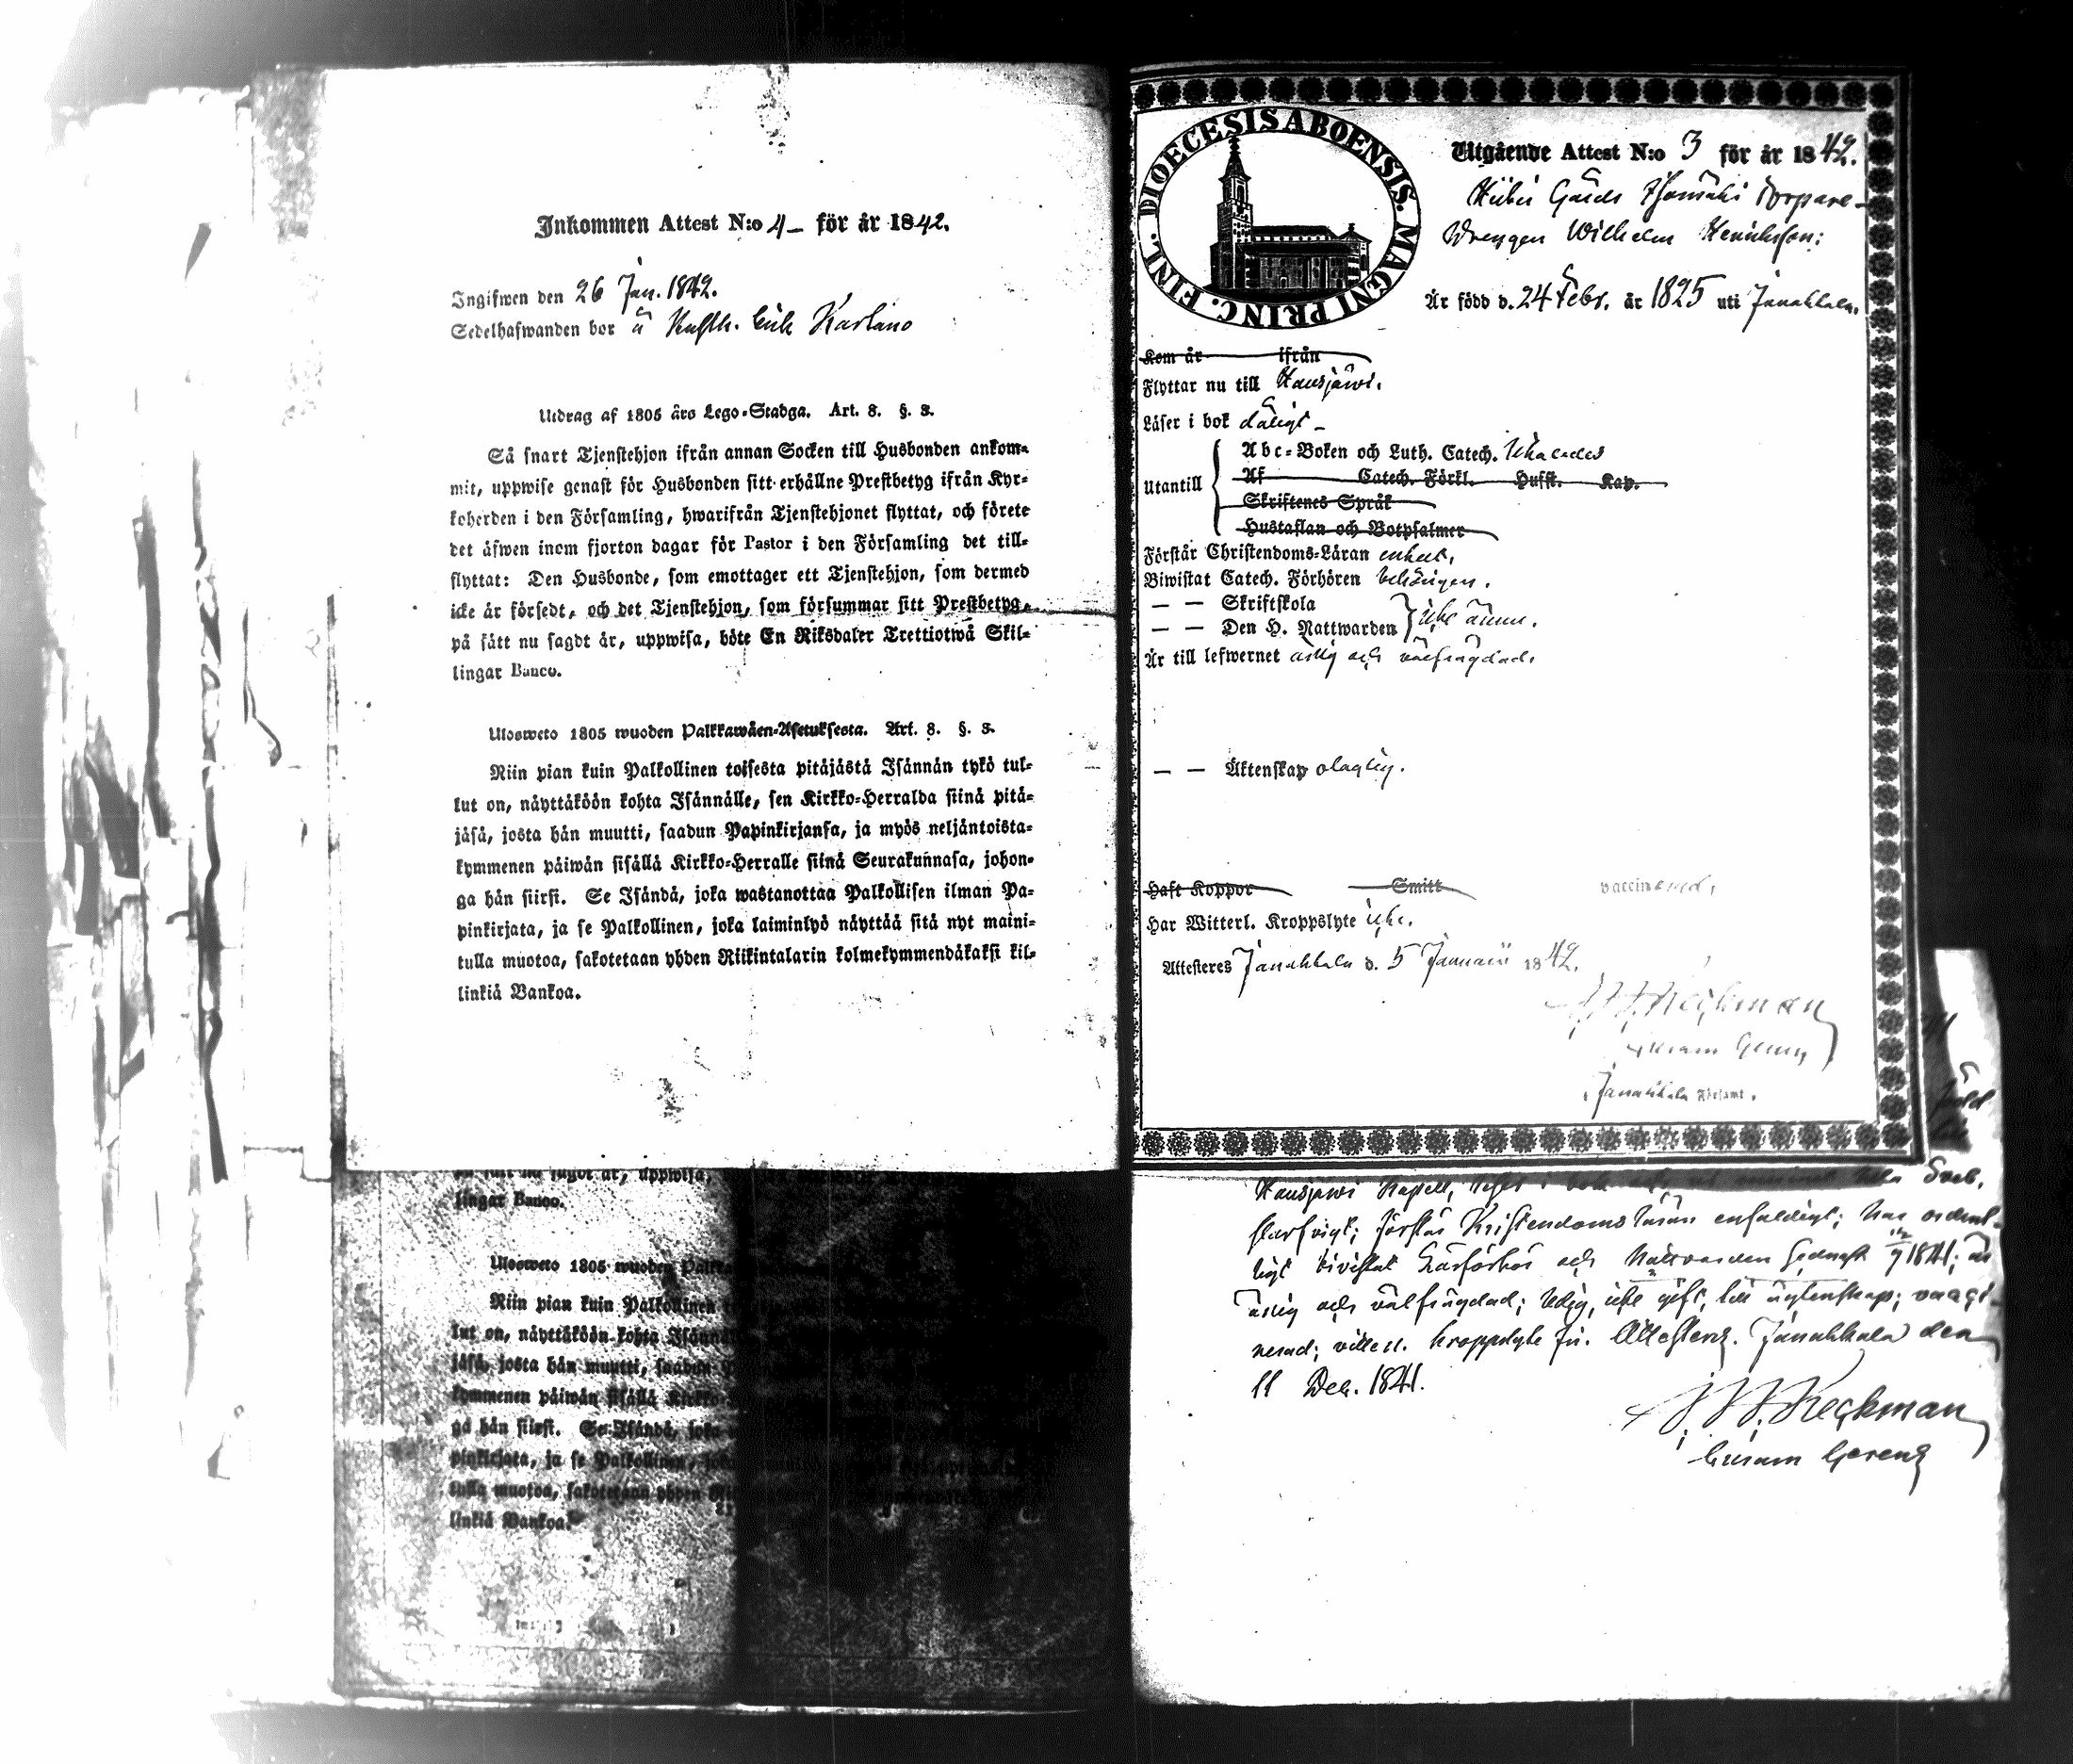 Inkommen Attest N:o 4 – för år 1842.
Ingifwen den 26 Jan. 1842.
Sedelhafwanden bor å Rusth. Erik Karlano
Utdrag af 1805 års Lego-Stadga. Art. 8. §. 3.
Så snart Tjenstehjon ifrån annan Socken till Husbonden ankom-
mit, uppwise genast för Husbonden sitt erhållne Prestbetyg ifrån Kyr-
koherden i den Församling, hwarifrån Tjenstehjonet flyttat, och förete
det äfwen inom fjorton dagar för Pastor i den Församling det till-
flyttat: Den Husbonde, som emottager ett Tjenstehjon, som dermed
icke är försedt, och det Tjenstehjon, som försummar sitt Prestbetyg,
på sätt nu sagdt är, uppwisa, böte En Riksdaler Trettiotwå Skil-
lingar Banco.
Ulosweto 1805 wuoden Palkkawäen-Asetuksesta. Art. 8. §. 3.
Niin pian kuin Palkollinen toisesta pitäjästä Isännän tykö tul-
lut on, näyttäköön kohta Isännälle, sen Kirkko-Herralda siinä pitä-
jäsä, josta hän muutti, saadun Papinkirjansa, ja myös neljäntoista-
kymmenen päiwän sisällä Kirkko-Herralle siinä Seurakunnasa, johon-
ga hän siirsi. Se Isändä, joka wastanottaa Palkollisen ilman Pa-
pinkirjata, ja se Palkollinen, joka laiminlyö näyttää sitä nyt maini-
tulla muotoa, sakotetaan yhden Riikintalarin kolmekymmendäkaksi kil-
linkiä Bankoa.
på sätt nu sagdt är, uppwisa,
lingar Banco.
Ulosweto 1805 wuoden Palkka
Niin pian kuin Palkollinen
lut on, näyttäköön kohta Isänn
jäsä, josta hän muutti, saadun
kymmenen päiwän sisällä Kirkko-
ga hän siirsi. Se Isändä, joka
pinkirjata, ja se Palkollinen,
tulla muotoa, sakotetaan yhden
linkiä Bankoa.
DIOECESIS ABOENSIS. MAGNI PRINC. FINL.
Utgående Attest N:o 3 för år 1842.
Gårds Torpare-
Drengen Wilhelm Henriksson:
Är född d. 24 Febr. år 1825 uti Janakkala.
Kom år ifrån
Flyttar nu till Hausjärwi.
Läser i bok dåligt –
Utantill
Abc-Boken och Luth. Catech.
Af Catech. Förkl. Hufst. Kap.
Skriftenes Språk
Hustaflan och Botpsalmer
Förstår Christendoms-Läran enkelt.
Biwistat Catech. Förhören behörigen.
— — Skriftskola
— — Den H. Nattwarden icke ännu.
Är till lefwernet ärlig och välfrägdad.
— — Äktenskap olaglig.
Haft Koppor Smitt vaccinerad,
Har Witterl. Kroppslyte icke.
Attesteres Janakkala d. 5 Januarii 1842.
Heckman
Curam Gerens
Janakkala Församl.
Hausjärwi Kapell, Sveb.
förstår Kristendomsläran enfaldigt; har ordent-
ligt bivistat Läsförhör och Nattvarden 1841; är
ärlig och välfrägdad; ledig, icke gift, till ägtenskap; vacci-
nerad; vitterl. kroppslyte fri. Attesterar. Janakkala den
11 Dec. 1841.
Heckman
Curam Gerens